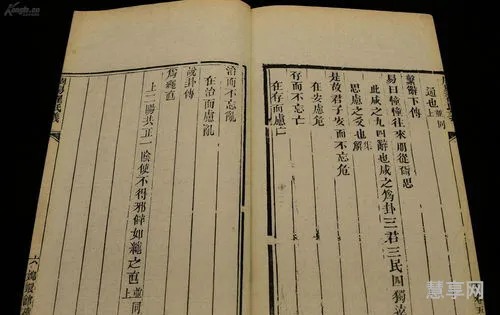 並同上
繫辭下傳
易曰憧憧往來朋從爾思
此咸之九四辭也咸之爲卦三君三民四獨遠
思慮之爻也
是故君子安而不忘危
在安慮危
存而不忘亡
在存而慮亡
治而不忘亂
在治而慮亂
說卦傳
爲繩直
上二陽共正一陰使不得邪僻如繩之直並同上
六
慧享网